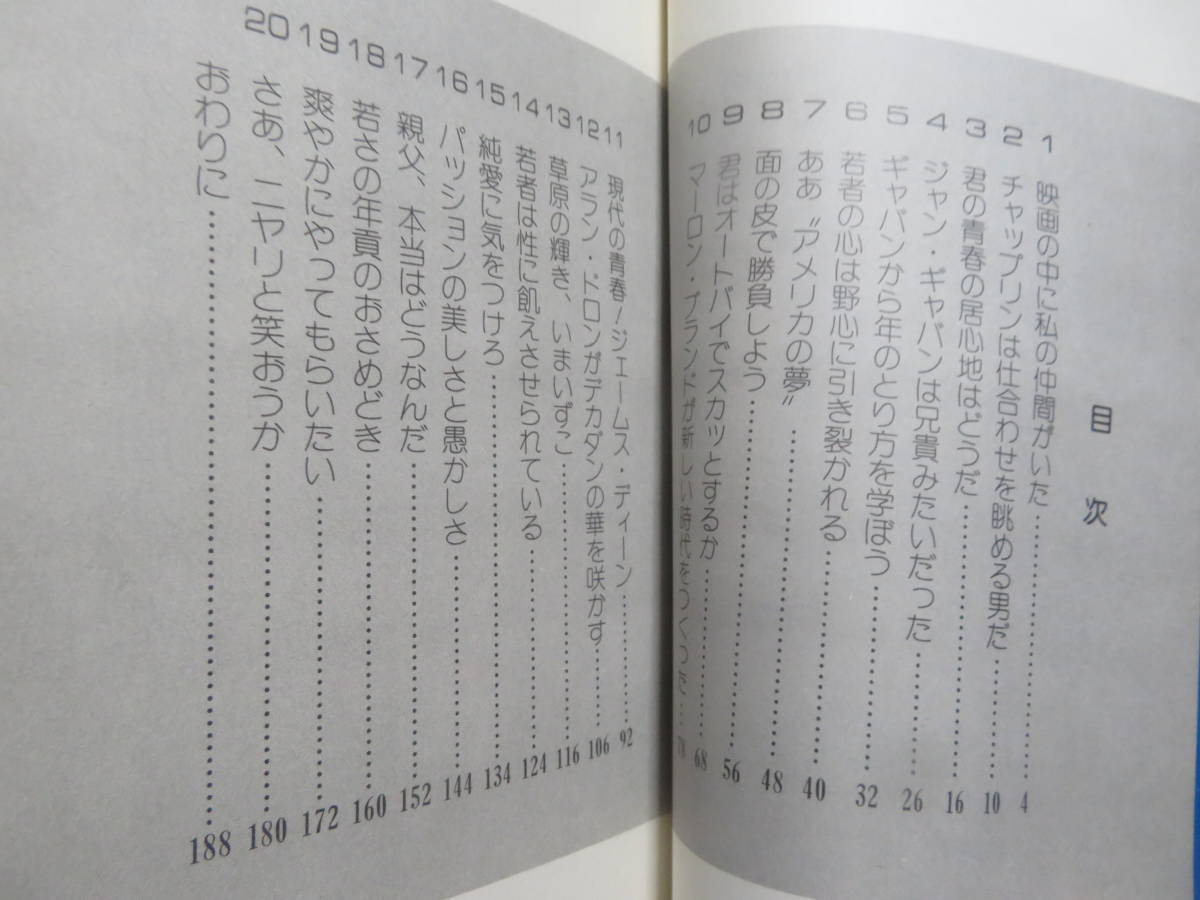 目次
1 映画の中に私の仲間がいた……4
2 チャップリンは仕合わせを眺める男だ……10
3 君の青春の居心地はどうだ……16
4 ジャン・ギャバンは兄貴みたいだった……26
5 ギャバンから年のとり方を学ぼう……32
6 若者の心は野心に引き裂かれる……40
7 ああ〝アメリカの夢〟……48
8 面の皮で勝負しよう……56
9 君はオートバイでスカッとするか……68
10 マーロン・ブランドが新しい時代をつくった……78
11 現代の青春!ジェームス・ディーン……92
12 アラン・ドロンがデカダンの華を咲かす……106
13 草原の輝き、いまいずこ……116
14 若者は性に飢えさせられている……124
15 純愛に気をつけろ……134
16 パッションの美しさと愚かしさ……144
17 親父、本当はどうなんだ……152
18 若さの年貢のおさめどき……160
19 爽やかにやってもらいたい……172
20 さあ、ニヤリと笑おうか……180
おわりに……188